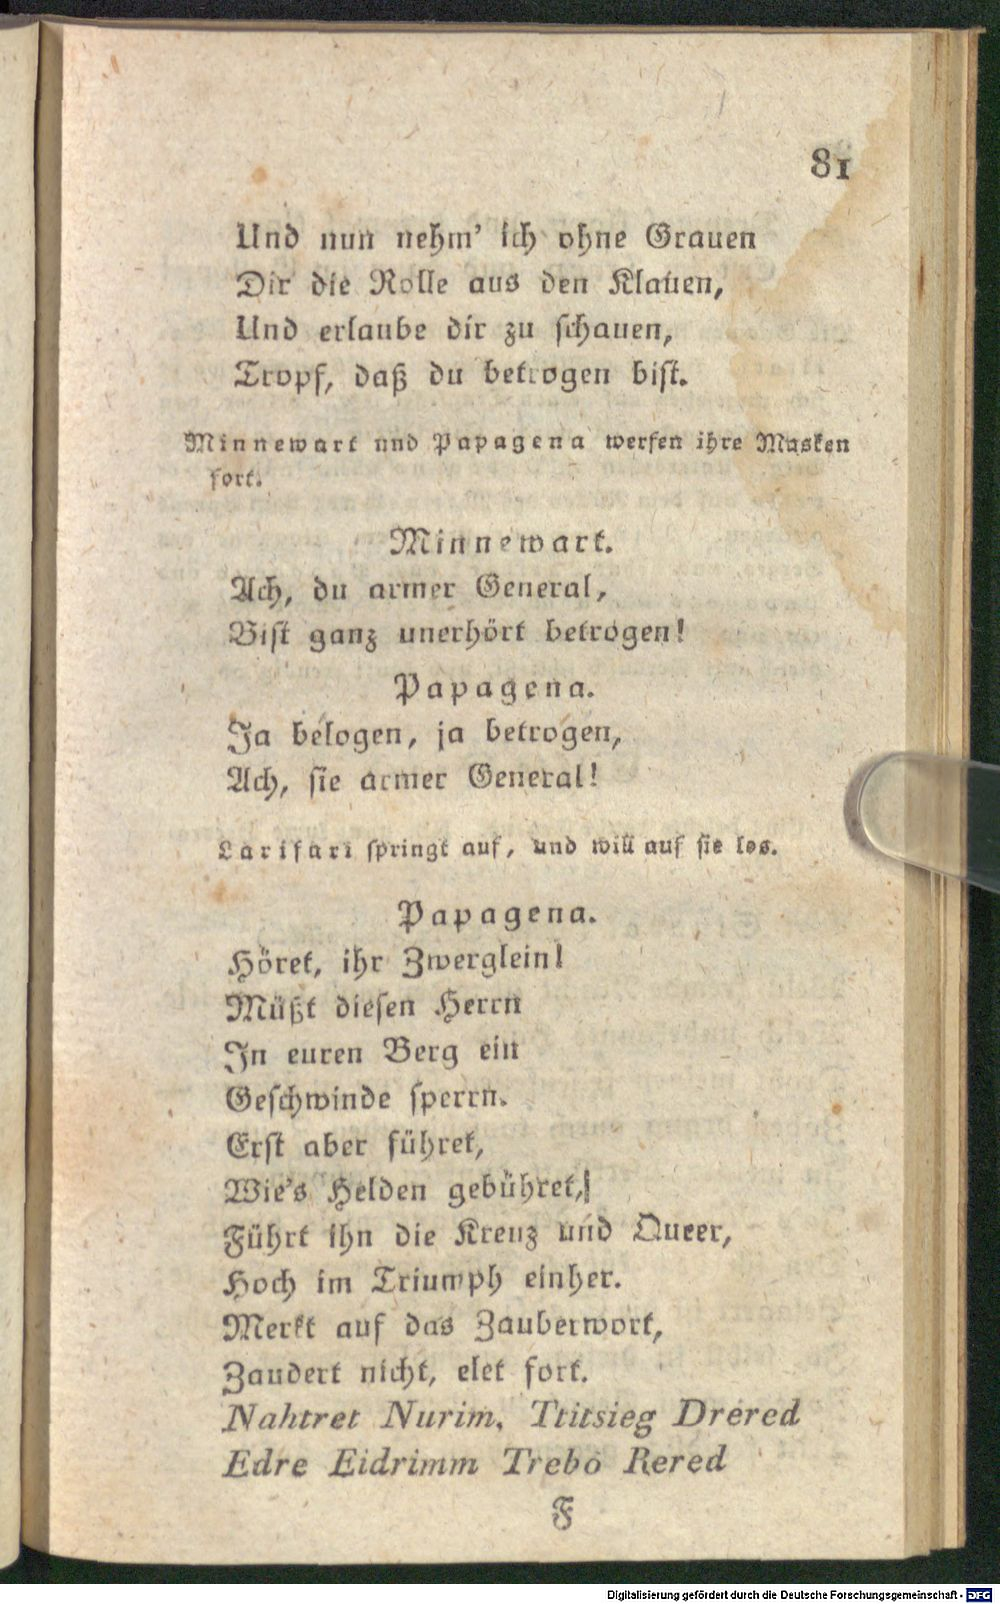 81
Und nun nehm' ich ohne Grauen
Dir die Rolle aus den Klauen,
Und erlaube dir zu schauen,
Tropf, daß du betrogen bist.
Minnewart und Papagena werfen ihre Masken
fort.
Minnewart.
Ach, du armer General,
Bist ganz unerhört betrogen!
Papagena.
Ja belogen, ja betrogen,
Ach, sie armer General!
Larifari springt auf, und will auf sie los.
Papagena.
Höret, ihr Zwerglein!
Müßt diesen Herrn
In euren Berg ein
Geschwinde sperrn.
Erst aber führet,
Wie's Helden gebühret,
Führt ihn die Kreuz und Queer,
Hoch im Triumph einher.
Merkt auf das Zauberwort,
Zaudert nicht, elet fort.
Nahtret Nurim, Ttitsieg Drered
Edre Eidrimm Trebo Rered
F
Digitalisierung gefördert durch die Deutsche Forschungsgemeinschaft - DFG